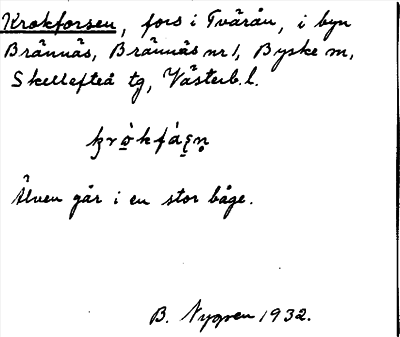 Krokforsen, fors i Tvärån, i byn
Brännäs, Brännäs nr 1, Byske m,
Skellefteå tg, Västerb.l.
Älven går i en stor båge.
B. Nygren 1932.